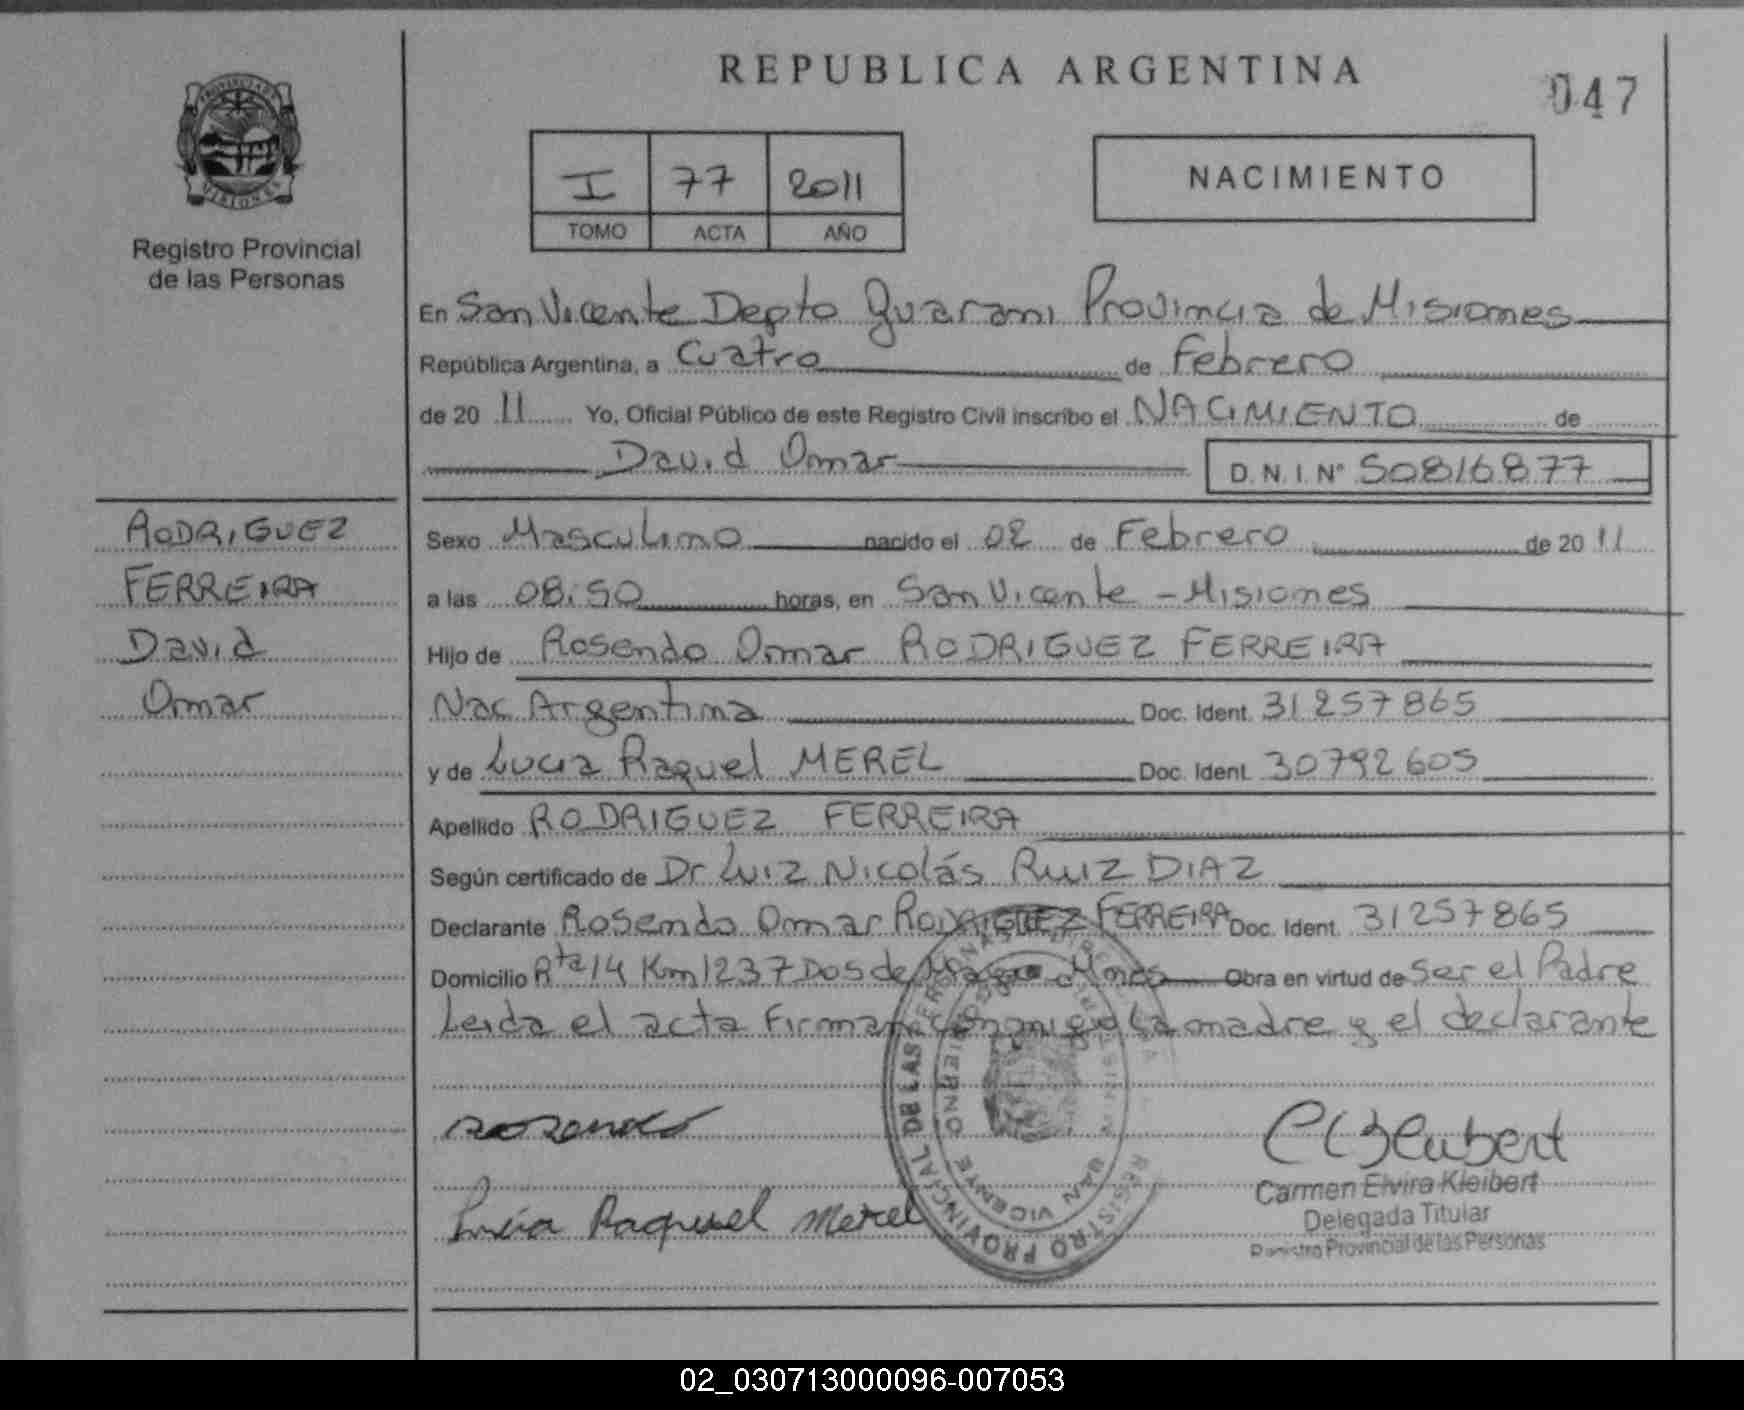 REPUBLICA ARGENTINA
047
PROVINCIA DE
MISIONES
Registro Provincial
de las Personas
I 77 2011
TOMO ACTA AÑO
NACIMIENTO
En San Vicente Depto Guarani Provincia de Misiones
República Argentina, a Cuatro de Febrero
de 20 11 Yo, Oficial Público de este Registro Civil inscribo el NACIMIENTO de
David Omar D. N. I. Nº 50816877
RODRIGUEZ
FERREIRA
David
Omar
Sexo Masculino nacido el 02 de Febrero de 20 11
a las 08:50 horas, en San Vicente - Misiones
Hijo de Rosendo Omar RODRIGUEZ FERREIRA
Nac Argentina Doc. Ident. 31257865
y de Lucia Raquel MEREL Doc. Ident. 30792605
Apellido RODRIGUEZ FERREIRA
Según certificado de Dr Luiz Nicolás RUIZ DIAZ
Declarante Rosendo Omar RODRIGUEZ FERREIRA Doc. Ident. 31257865
Domicilio Rta 14 Km 1237 Dos de Mayo Mnes Obra en virtud de Ser el Padre
Leida el acta Firman conmigo la madre y el declarante
Rosendo
Lucía Raquel Merel
REGISTRO PROVINCIAL DE LAS PERSONAS
SAN VICENTE
Carmen Elvira Kleibert
Delegada Titular
Registro Provincial de las Personas
02_030713000096-007053